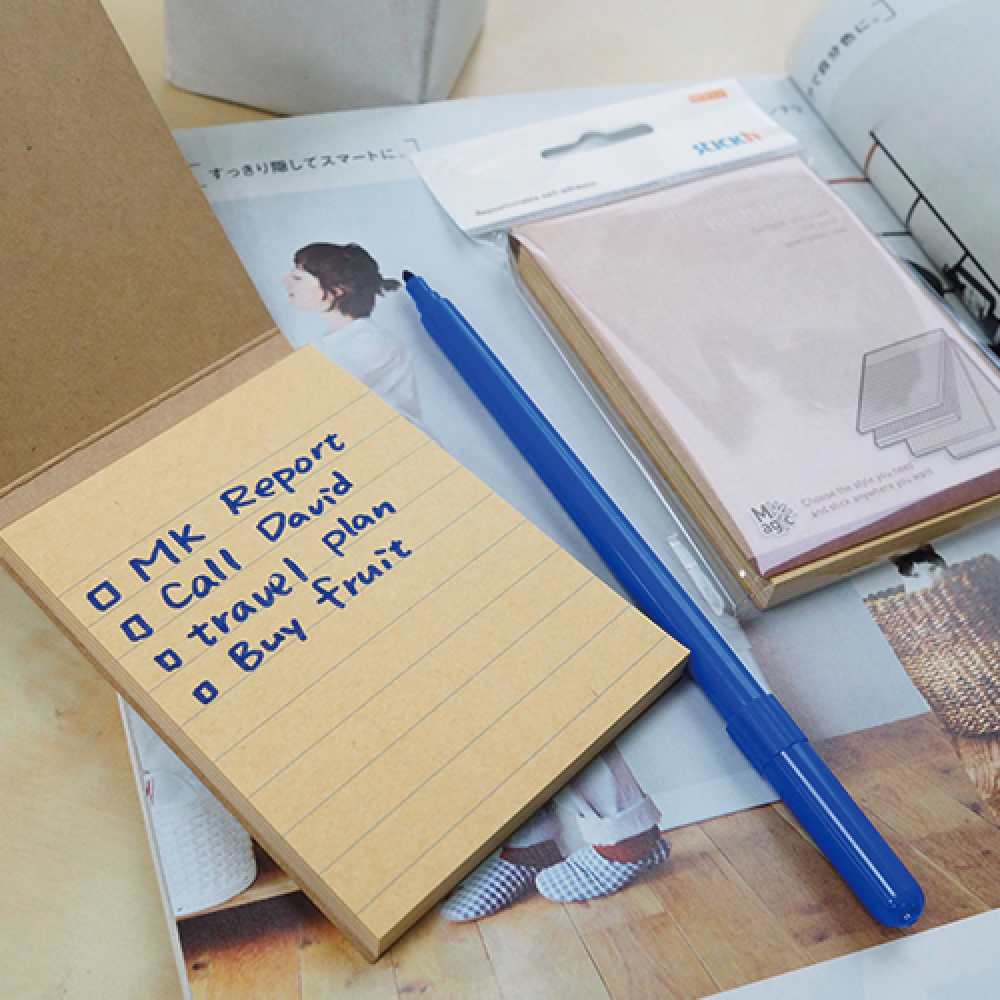 すっきり隠してスマートに。
STICK'n
Repositionable self-adhesive
MK Report
Call David
travel plan
Buy fruit
Magic
Choose the style you need
and stick anywhere you want